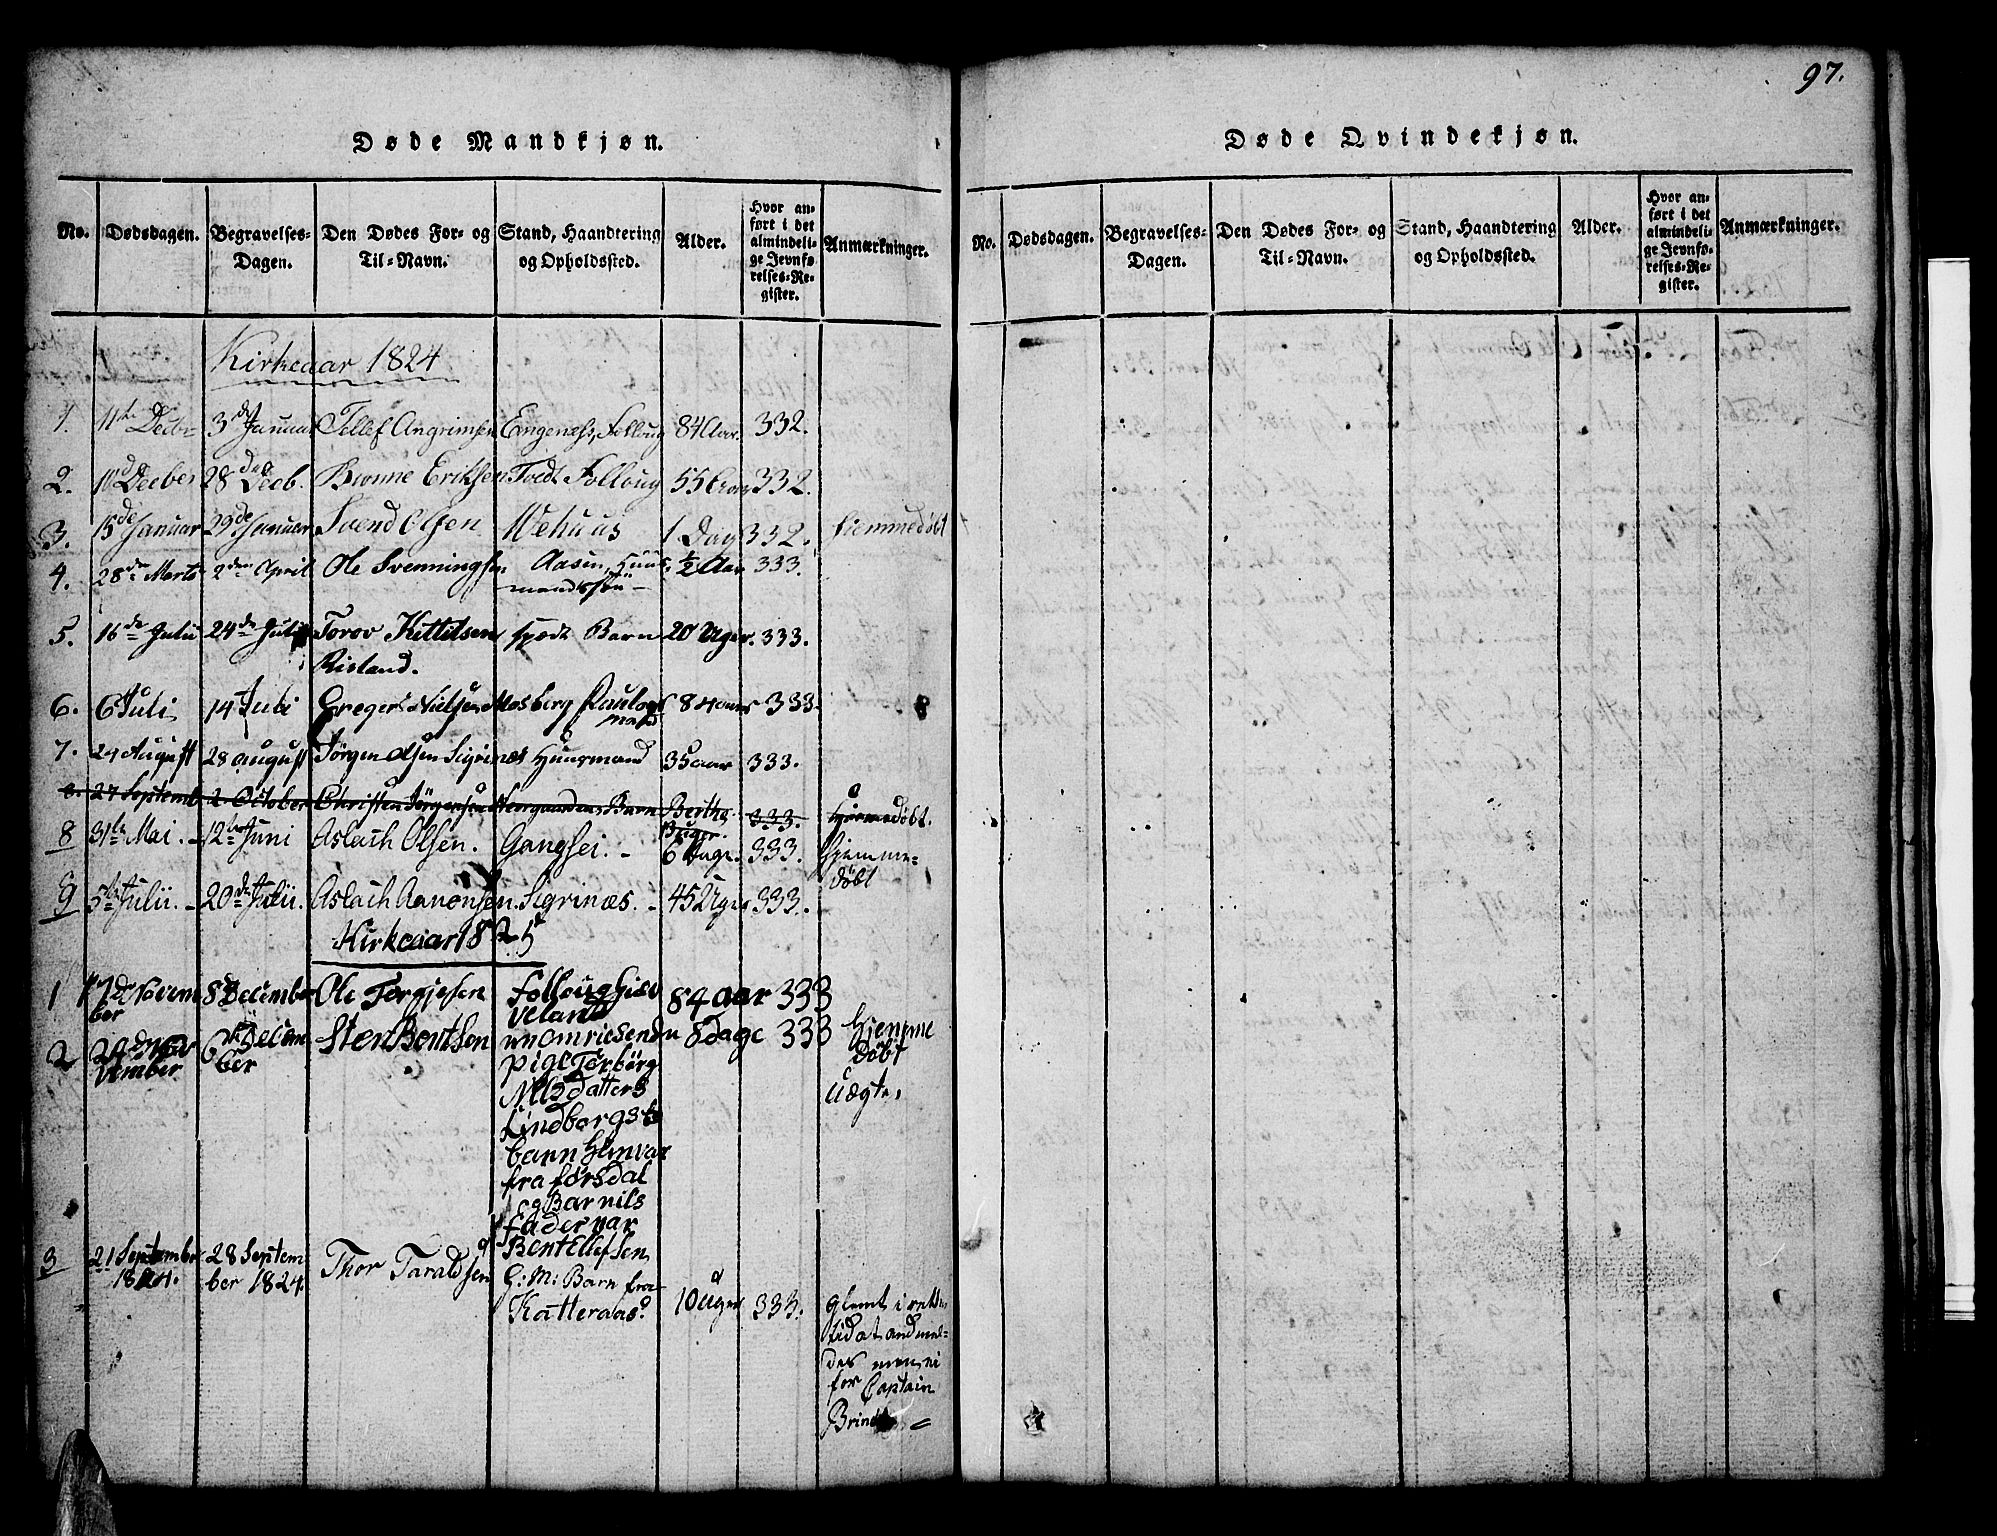 97.
Døde Mandkjøn.
No. Dødsdagen. Begravelses-Dagen. Den Dødes For- og Til-Navn. Stand, Haandtering og Opholdssted. Alder. Hvor anført i det almindelige Jevnførelses-Register. Anmærkninger.
Kirkeaar 1824
1. 11te Decbr 3de Januar Tellef Angrimsen Engenæs, Follaug 84 Aar. 332.
2. 10d Decber 28de Decb. Brønne Eriksen Tvedt Follaug 55 332.
3. 15de Januar 29de Januar Svend Olsen Wehuus 1 Dag 332. hiemmedøbt
4. 28de Marts 2den April Ole Svenningsen Aasen, Huus-
mandssøn ½ Aar 333.
5. 16de Julii 24de Julii Torov Kittilsen spædt Barn 20 Uger. 333.
Risland.
6. 6 Juli 14 Juli Greger Nielsen Mosberg 84 aar 333.
7. 24 August 28 august Jørgen Olsen Sigrinæs Huusmand 35 aar 333.
8. 27 Septemb 2 October Christen Jørgensen Barn 333. hjemedøbt.
8 31te Mai. 12te Juni Aslach Olsen. Gangsei. 6 Dage. 333. hjemme-
døbt
9 5te Julii. 20de Julii. Aslach Aanonsen. Sigrinæs. 45 Uger 333.
Kirkeaar 1825
1 17de Novem
ber 8de December Ole Tergjesen 84 aar 333
2 24de No
vember 6te Decem
ber Sten Bentsen 8 dage 333 Hjemme
døbt
Uægte.
pige Torborg
Nels datters
barn Hun var
fra forsdal
og Bar nils
fader var
Bent Ellefsen
3 21 September
1824. 28 Septem
ber 1824. Thor Taraldsen G: M: Barn fra
Katteraas. 10 uger 333. glemt i rette
tid at andmel-
des men ei
for Captain
Døde Qvindekjøn.
No. Dødsdagen. Begravelses-Dagen. Den Dødes For- og Til-Navn. Stand, Haandtering og Opholdssted. Alder. Hvor anført i det almindelige Jevnførelses-Register. Anmærkninger.